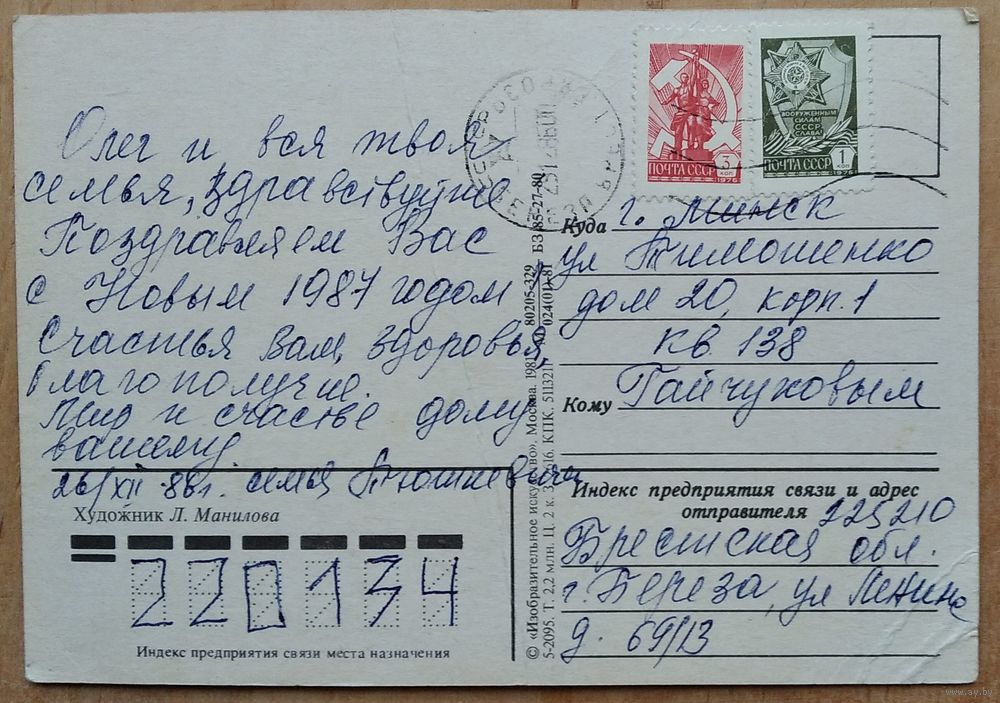 Олег и вся твоя
семья, здравствуйте
Поздравляем Вас
с Новым 1987 годом
Счастья Вам, здоровья,
благополучие.
Мир и счастье дому
вашему
26/XII-86г. семья Тюшкевич
Художник Л. Манилова
220134
Индекс предприятия связи места назначения
© «Изобразительное искусство». Москва. 1981
80205-329
БЗ 85-27-80
024(01)-81
5-2095. Т. 2,2 млн. Ц. 2 к. КПК.
ПОЧТА СССР 3 КОП
1976
ВООРУЖЕННЫМ
СИЛАМ
СССР
СЛАВА!
ПОЧТА СССР 1 КОП
1976
Куда г. Минск
ул Тимошенко
дом 20, корп. 1
кв. 138
Кому Гайчуковым
Индекс предприятия связи и адрес
отправителя 225210
Брестская обл.
г. Береза, ул Ленина
д. 69/13
www.ay.by